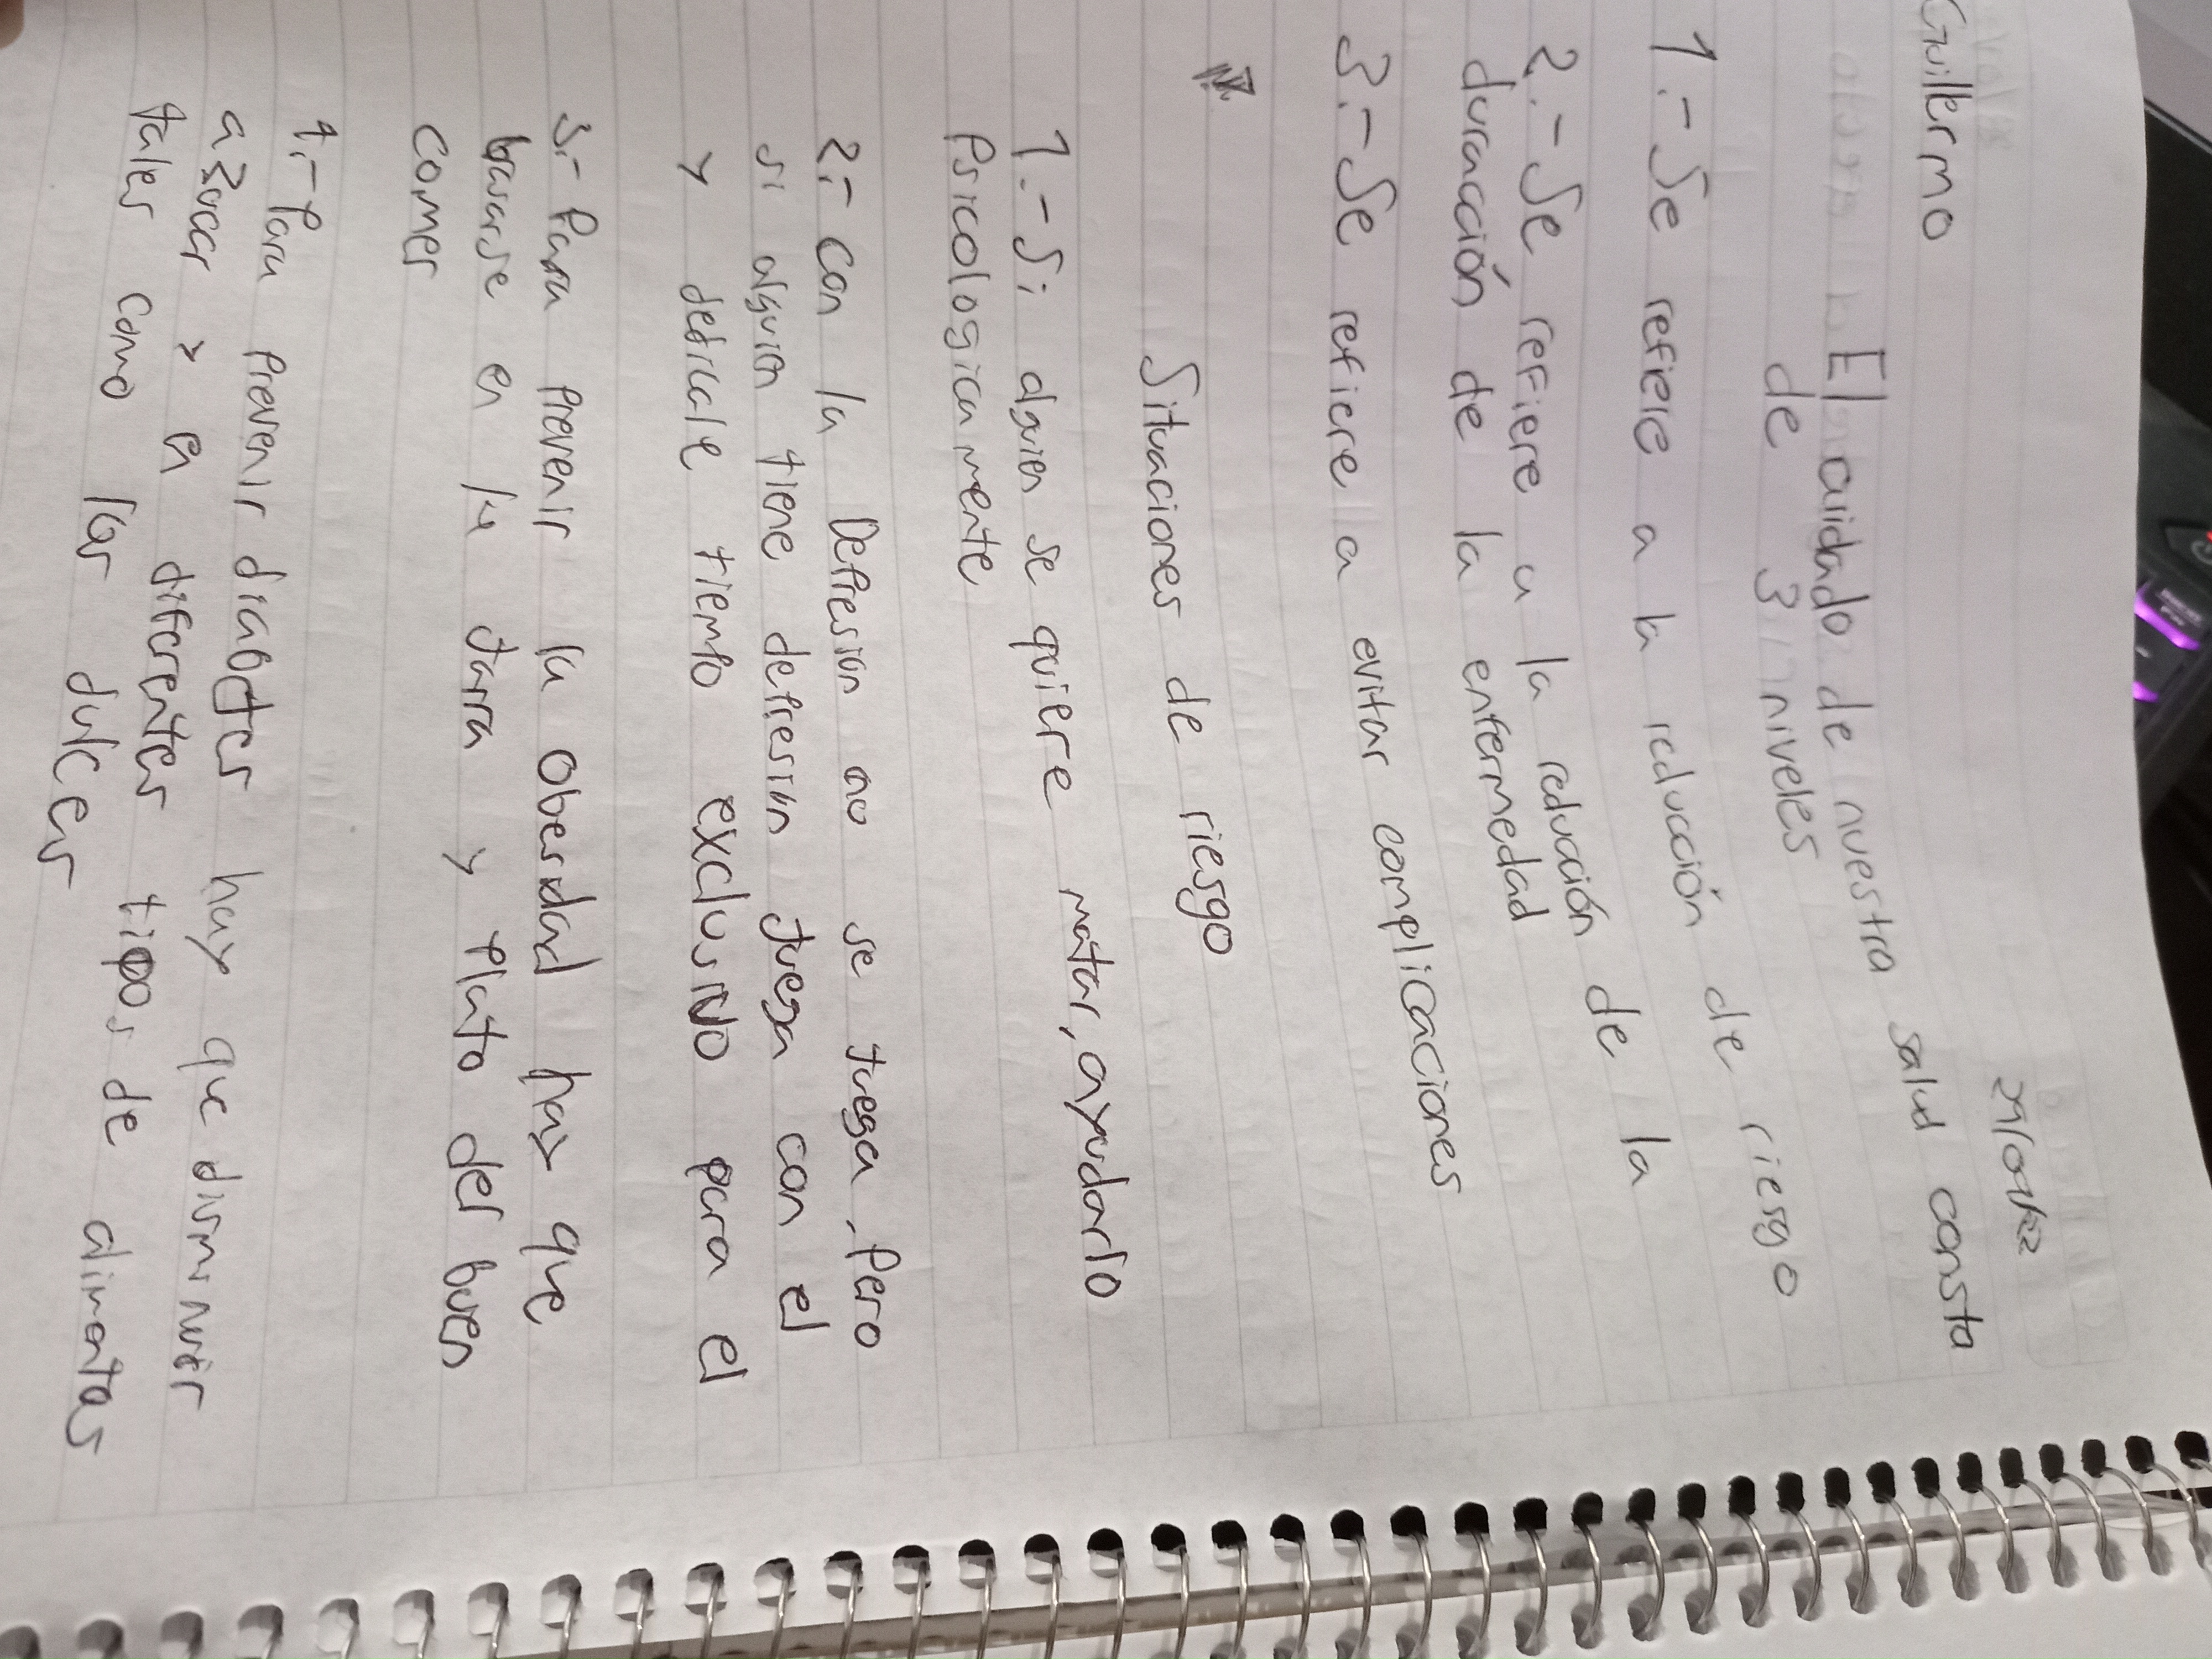 Guillermo
El cuidado de nuestra salud consta
de 3 niveles
1.- Se refiere a la reducción de riesgo
2.- Se refiere a la reducción de la
duración de la enfermedad
3.- Se refiere a evitar complicaciones
Situaciones de riesgo
1.- Si alguien se quiere matar, ayudarlo
Psicologicamente
2.- Con la Depresion no se juega, Pero
si alguien tiene depresion juega con el
y dedicale tiempo exclusivo para el
3.- Para prevenir la obesidad hay que
basarse en la Jarra y Plato del buen
comer
4.- Para prevenir diabetes hay que disminuir
azucar y en diferentes tipos de alimentos
tales como los dulces